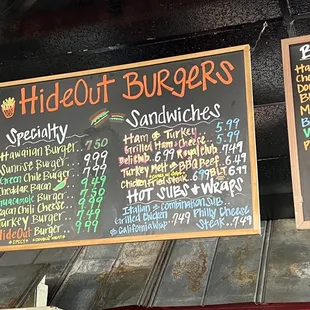 HideOut Burgers
Specialty
Hawaiian Burger... 7.50
Sunrise Burger... 9.99
Green Chile Burger 9.99
Cheddar Bacon 9.49
Guacamole Burger 9.49
Bacon Chili Cheese.. 9.49
Turkey Burger... 7.49
HideOut Burger.. 9.99
Sandwiches
Ham & Turkey 5.99
Grilled Ham & Cheese.. 5.99
Deli Club 6.99 Royal Club 7.49
Turkey Melt BBQ Beef 6.49
Chicken Fried Steak 6.99
BLT 6.99
Hot Subs & Wraps
Italian & Combination Sub
Grilled Chicken 7.49 Philly Cheese
& California Wrap Steak.. 7.49